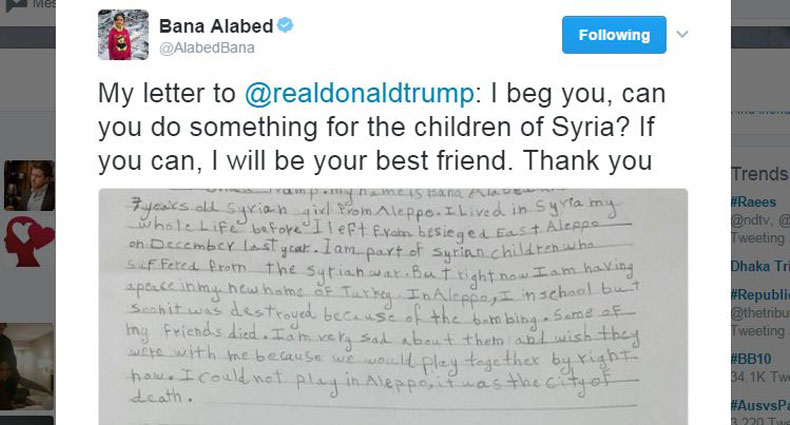 Mes
Bana Alabed
@AlabedBana
Following
My letter to @realdonaldtrump: I beg you, can
you do something for the children of Syria? If
you can, I will be your best friend. Thank you
my name is Bana
7 years old Syrian girl from Aleppo. I Lived in Syria my
whole Life before I left from besieged East Aleppo
on December last year. I am part of Syrian children who
suffered from the Syrian war. But right now I am having
a peace in my new home of Turkey. In Aleppo, I in school but
soon it was destroyed because of the bombing. Some of
my friends died. I am very sad about them and wish they
were with me because we would play together by right
now. I could not play in Aleppo, it was the city of
death.
Trends
#Raees
@ndtv, @
Tweeting
Dhaka Tri
#Republi
@thetribu
Tweeting
#BB10
34.1K Tw
#AusvsPa
3,220 Twe